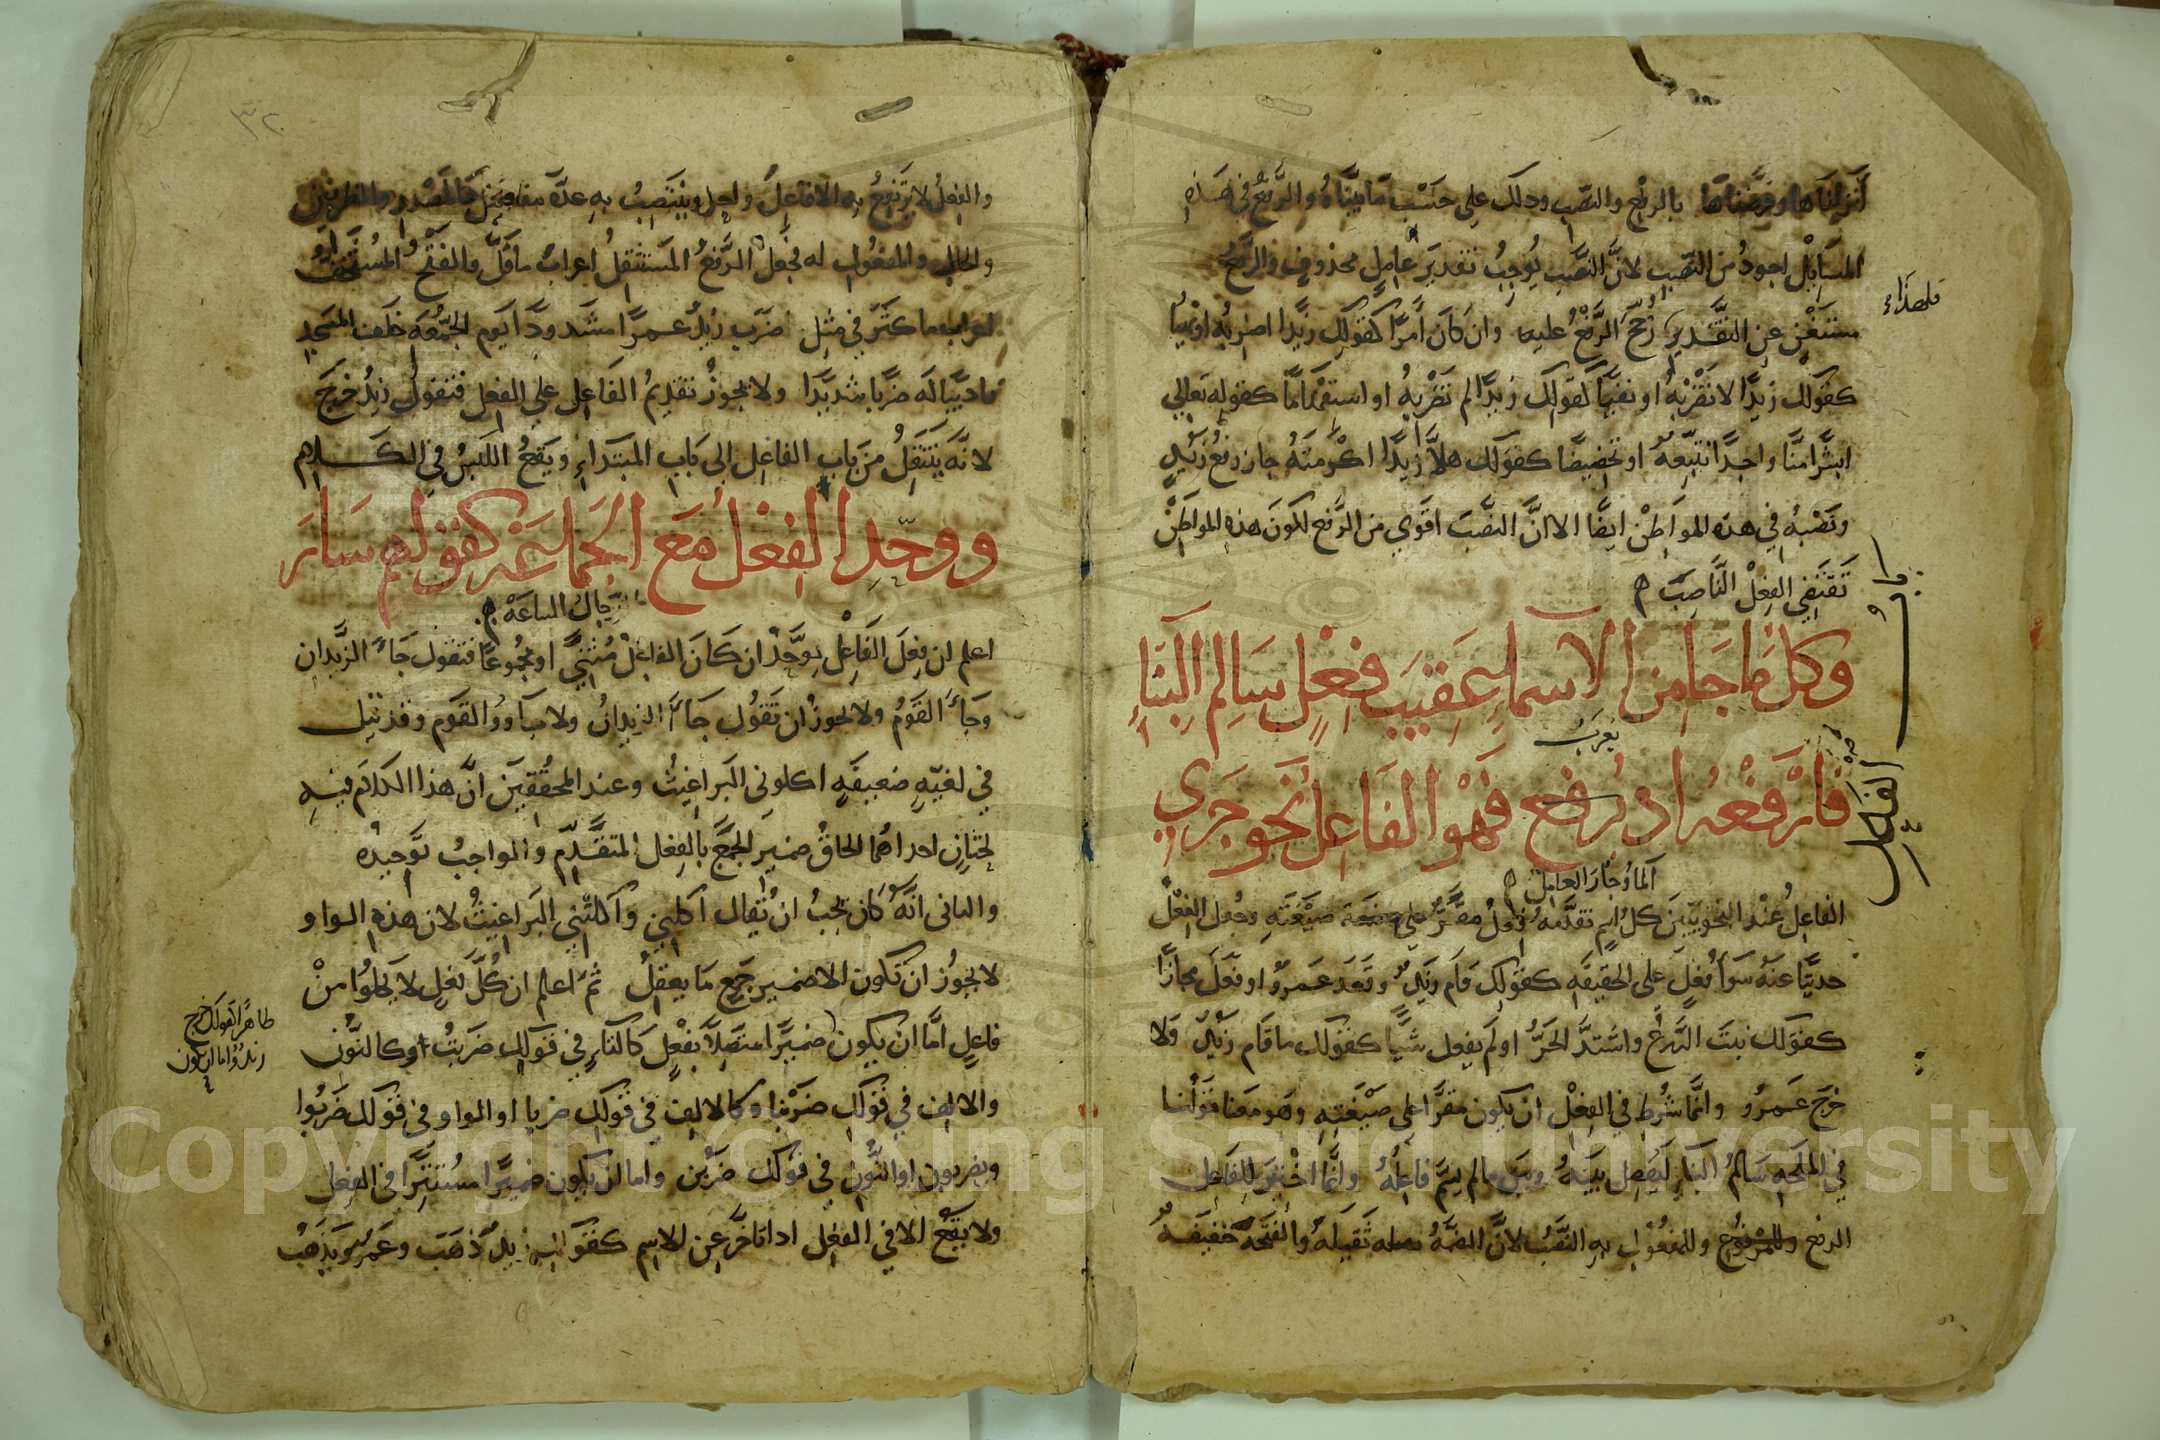 أنزلناها وفرضناها بالرفع والنصب وذلك على حسب ما بيناه والرفع في هذه
المسايل اجود من النصب لان النصب يوجب تقدير عامل محذوف والرفع
مستغن عن التقدير رجح الرفع عليه وان كان أمرا كقولك زيدا اضربه او نهيا
فلهذا
كقولك زيدا لا تضربه او نفيا كقولك زيدا لم تضربه او استفهاما كقوله تعالى
ابشرا منا واحدا نتبعه او تحضيضا كقولك هلا زيدا اكرمته جاز رفع زيد
ونصبه في هذه المواطن ايضا الا ان النصب اقوي من الرفع لكون هذه المواطن
تقتضي الفعل الناصب
باب الفاعل
وكل ما جا من الاسماء عقيب فعل سالم البناء
فارفعه اذ ترفع فهو الفاعل نحو جري
تعرب
الماء وجار العامل
الفاعل عند النحويين كل اسم تقدمه فعل مقر على صيغته وجعل الفعل
حديثا عنه سوا فعل على الحقيقه كقولك قام زيد وقعد عمرو او فعل مجازا
كقولك نبت الزرع واشتد الحر او لم يفعل شيا كقولك ما قام زيد ولا
خرج عمرو وانما شرط في الفعل ان يكون مقرا على صيغته وهو معنا قولنا
في الملحه سالم البناء ليفصل بينه وبين ما لم يسم فاعله وانما اختير للفاعل
الرفع وللمفعول به النصب لان الضمه ثقيله والفتحه خفيفه
٣٢
والفعل لا يرتفع به الا فاعل واحد وينتصب به عدة مفاعيل كالمصدر والظرفين
والحال والمفعول له فجعل الرفع المستثقل اعراب ما قل والفتح المستخف
اعراب ما كثر في مثل ضرب زيد عمرا مشدودا يوم الجمعه خلف المسجد
تاديبا له ضربا شديدا ولا يجوز تقديم الفاعل على الفعل فتقول زيد خرج
لانه ينتقل من باب الفاعل الى باب المبتداء ويقع اللبس في الكلام
ووحد الفعل مع الجماعة كقولهم سار
الرجال الساعة
اعلم ان فعل الفاعل يوحد ان كان الفاعل مثني او مجموعا فتقول جاء الزيدان
وجاء القوم ولا يجوز ان تقول جاءا الزيدان ولا جاوو القوم وقد قيل
في لغيه ضعيفه اكلوني البراغيث وعند المحققين ان هذا الكلام فيه
لحنان احداهما الحاق ضمير الجمع بالفعل المتقدم والواجب توحيده
والثاني انه كان يجب ان يقال اكلني واكلتني البراغيث لان هذه الواو
لا يجوز ان تكون الا ضمير جمع ما يعقل ثم اعلم ان كل فعل لا يخلوا من
فاعل اما ان يكون ضميرا متصلا بفعل كالتاء في قولك ضربت او كالنون
ظاهرا كقولك خرج
زيد واما ان يكون
والالف في قولك ضربنا وكالالف في قولك ضربا او الواو في قولك ضربوا
ويضربون او النون في قولك ضربن واما ان يكون ضميرا مستترا في الفعل
ولا يقع الا في الفعل اذا تاخر عن الاسم كقولك زيد ذهب وعمرو يذهب
Copyright © King Saud University